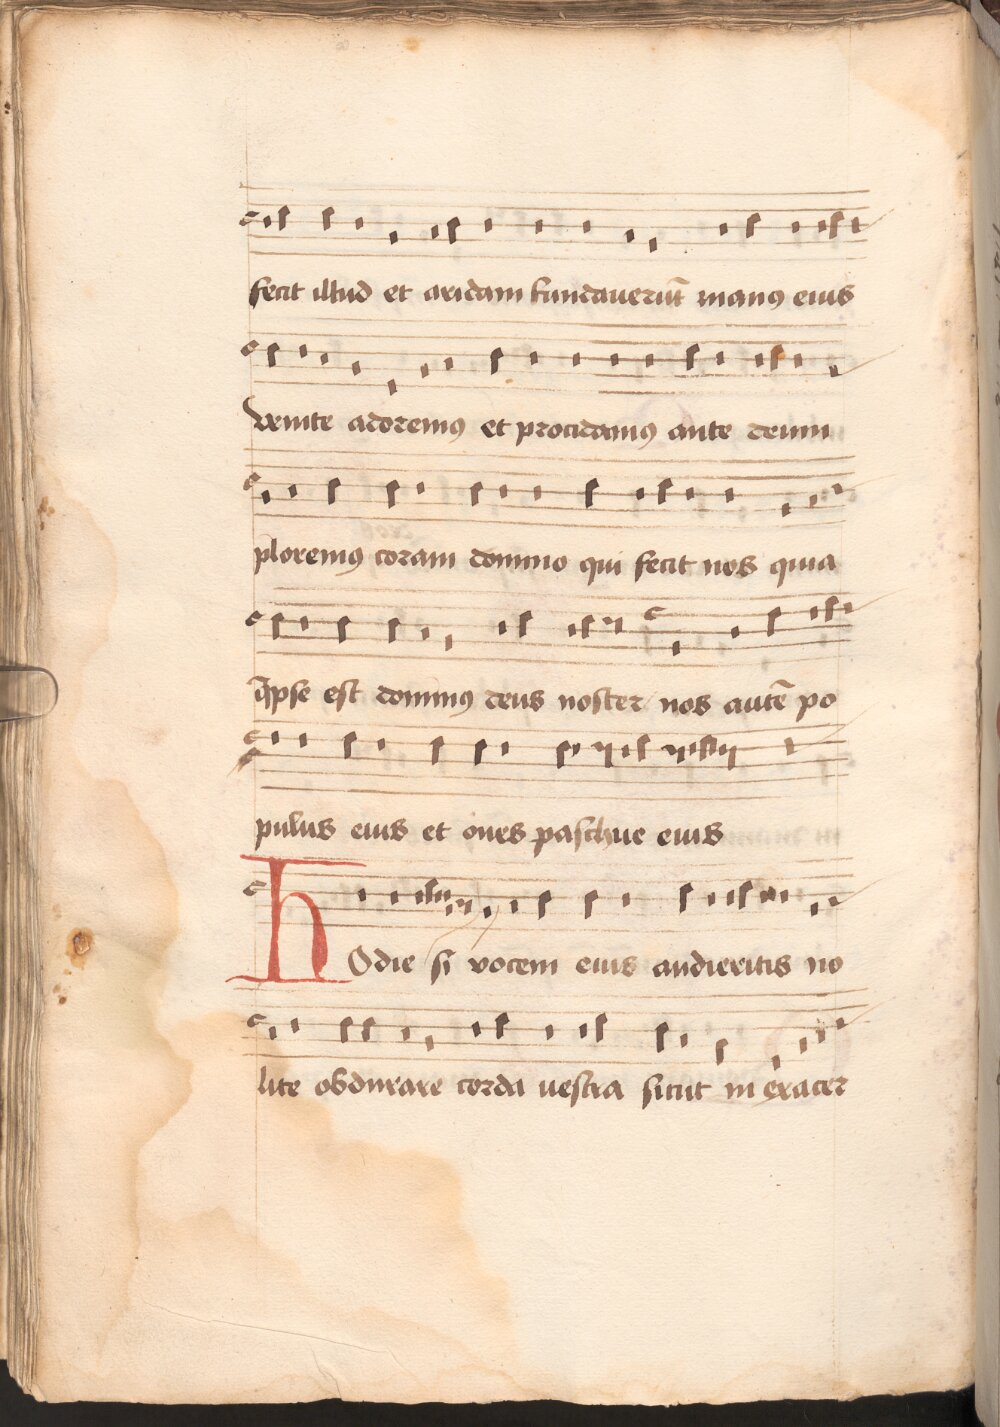 fecit illud et aridam fundaverūt manꝰ eius
Venite adoremꝰ et procidamꝰ ante deum
ploremꝰ coram domino qui fecit nos quia
ip̄se est dominꝰ deus noster nos autē po
pulus eius et oues paschue eius
hOdie si vocem eius audieritis no
lite obdurare corda uestra sicut in exacer